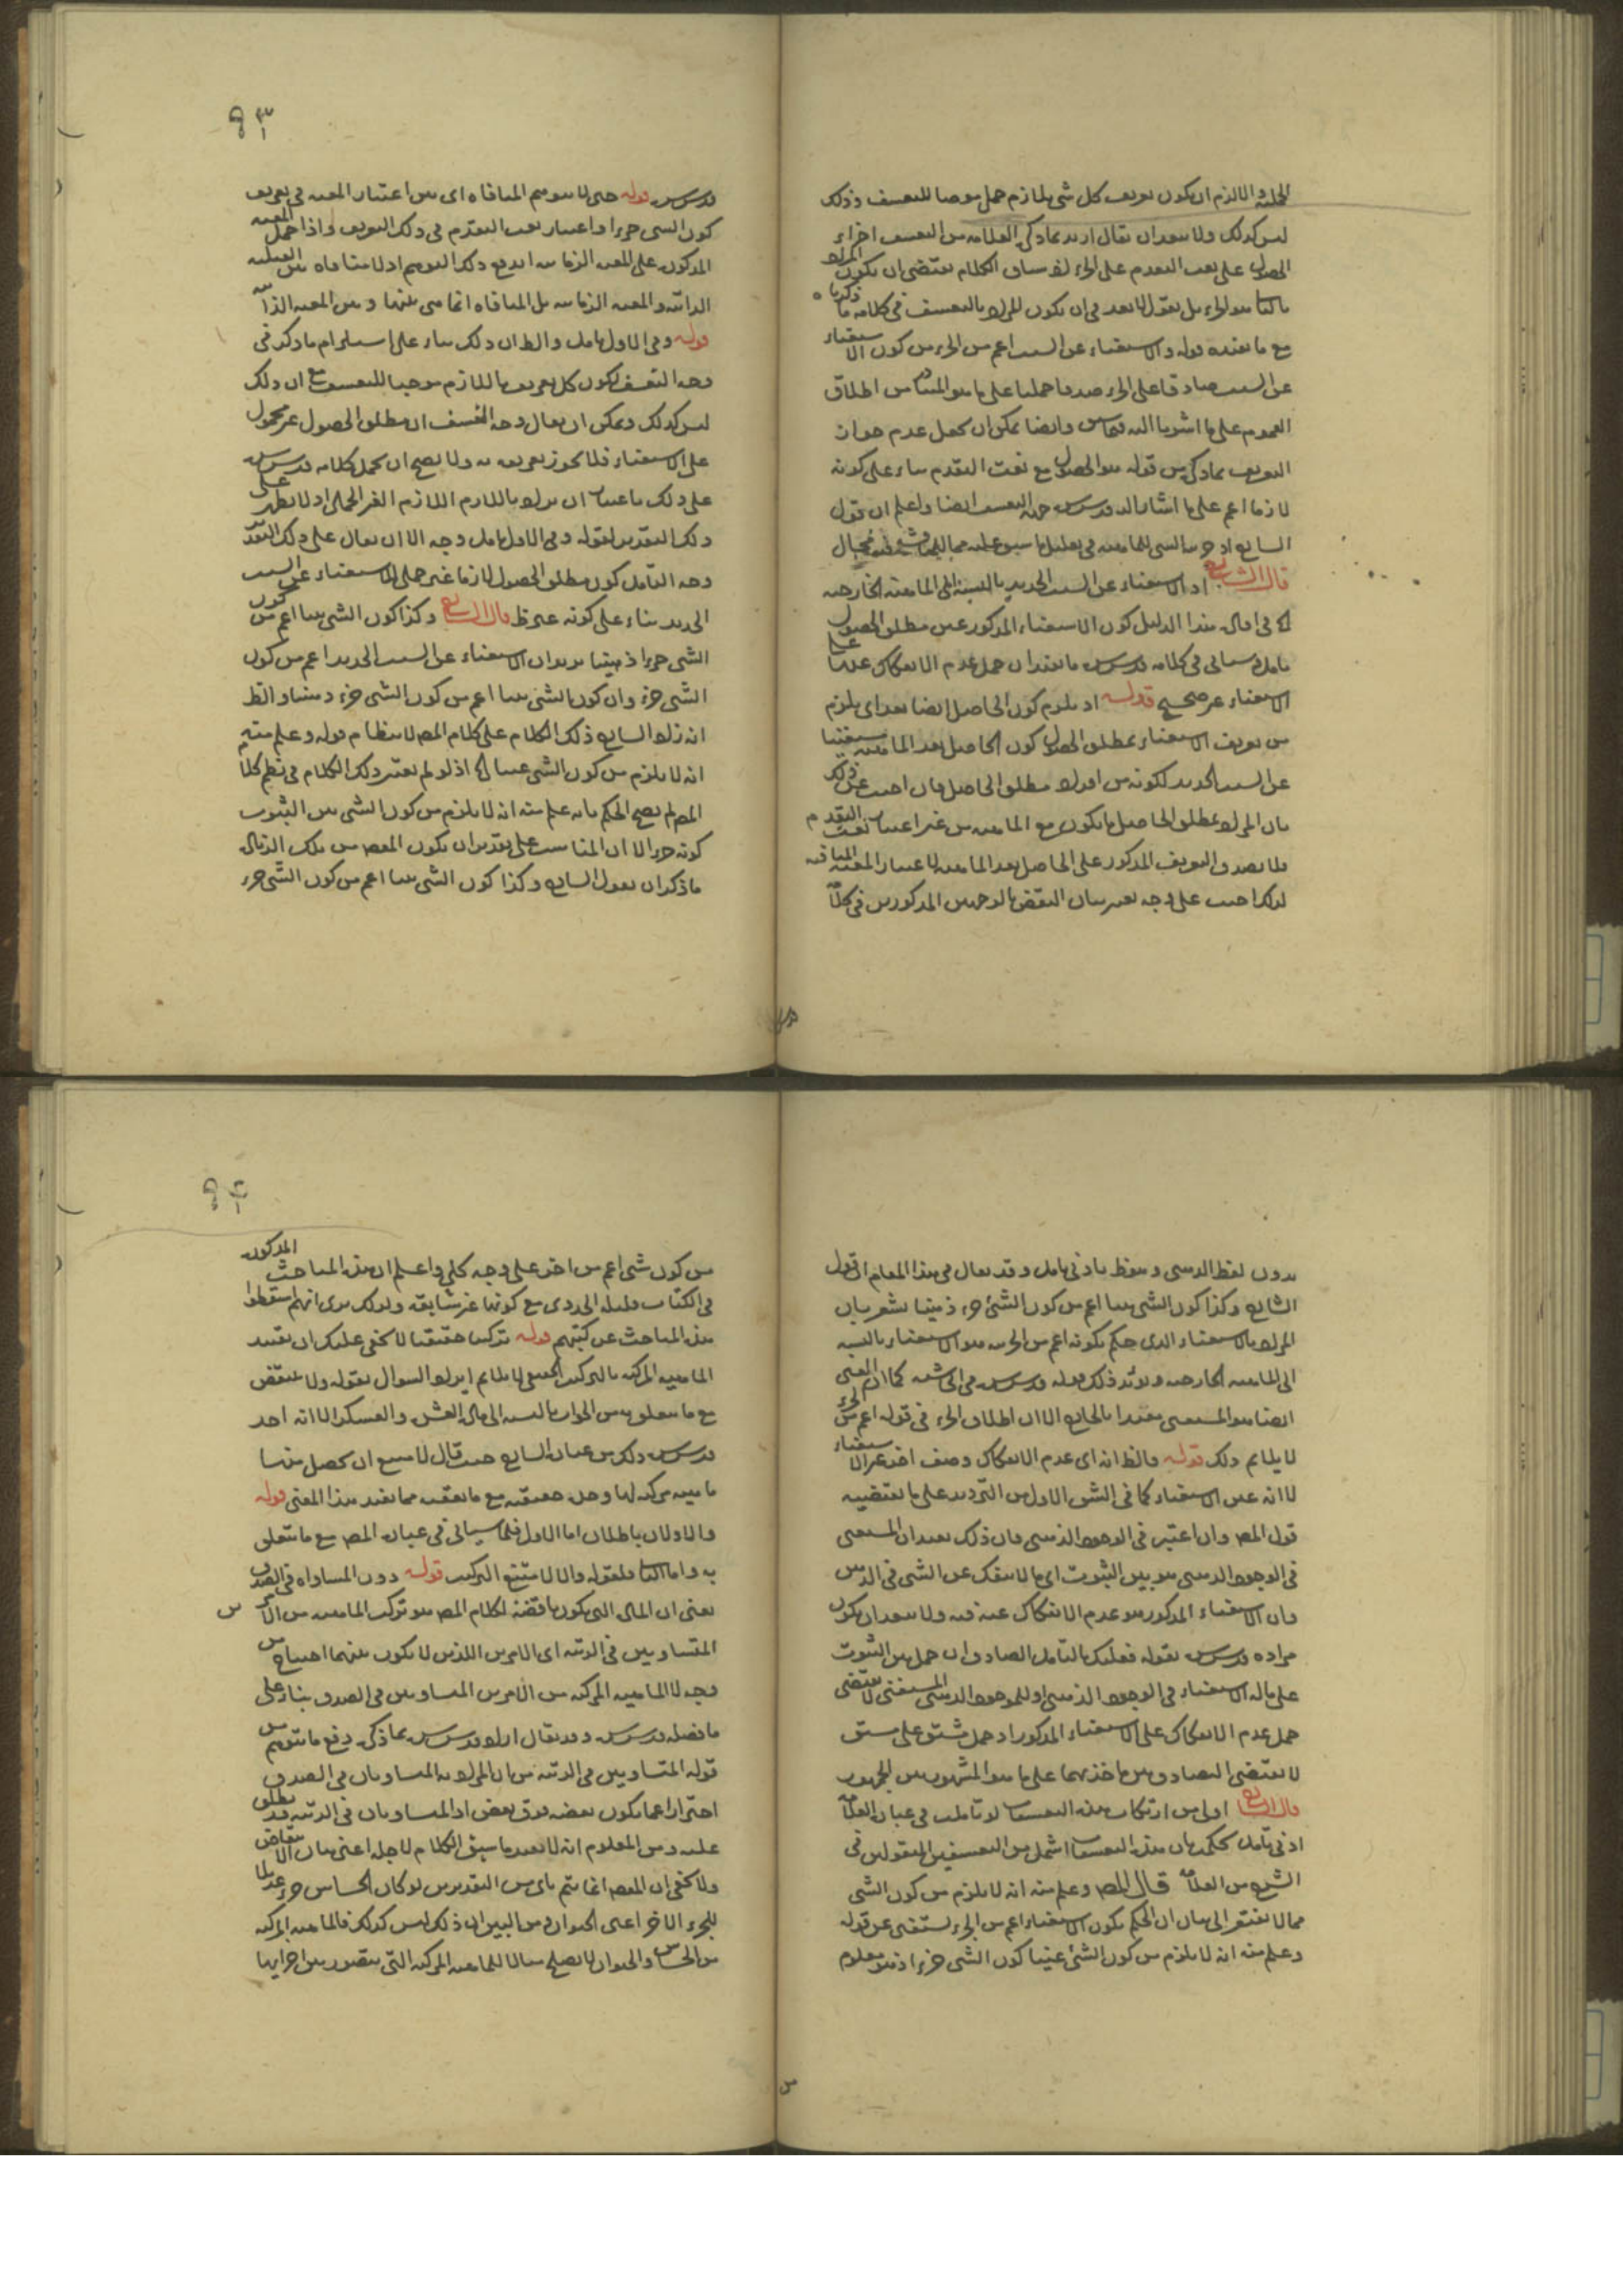 الجملة والا لزم ان يكون تعريف كل شي بلازم حمل موجبا للتعسف وذلك
ليس كذلك ولا يبعد ان يقال اريد بما ذكره العلامة من التعسف اجراء
الحصول على نعت التقدم على الجزء لان سياق الكلام يقتضي ان يكون المراد
هو الجزء بل نقول لا بعد في ان يكون المراد بالتعسف في كلامه ما ذكرناه
مع ما بعده قوله والاستغناء عن السبب اعم من الجزء من كون الاستغناء
عن السبب صادقا على الجزء صدقا حمليا على ما هو المتبادر من اطلاق
العموم على ما اشرنا اليه وايضا يمكن ان يجعل عدم جواز
التعريف بما ذكر من قوله هو الحصول مع نعت التقدم بناء على كونه
لازما اعم على ما اشار اليه قدس سره التعسف ايضا واعلم ان قول
قال الشارح اذ الاستغناء عن السبب الجديد بالنسبة الى الماهية الخارجية
في هذا الدليل كون الاستغناء المذكور عين مطلق الحصول
تأمل سيأتي في كلامه قدس سره ما يفيد ان حمل عدم الانفكاك على
الاستغناء غير صحيح قوله اذ يلزم كون الحاصل ايضا بعد اي يلزم
من تعريف الاستغناء بمطلق الحصول كون الحاصل بعد الماهية مستغنيا
عن السبب الجديد لكونه من افراد مطلق الحاصل فان اجيب عن ذلك
بان المراد بمطلق الحاصل ما يكون مع الماهية من غير اعتبار نعت التقدم
فلا يصدق التعريف المذكور على الحاصل بعد الماهية لاعتبار المعية المنافية
لذلك اجيب على وجه يعتبر بيان النقض بالوجهين المذكورين في كلا
٩٣
قدس سره قوله حتى لا يتوهم المنافاه اي بين اعتبار المعية في تعريف
كون الشي جزءا واعتبار نعت التقدم في ذلك التعريف واذا حمل المعية
المذكورة على المعية الزمانية اندفع ذلك التوهم اذ لا منافاه بين القبلية
الذاتية والمعية الزمانية بل المنافاه انما هي بينها وبين المعية الذاتية
قوله وفي الاول تامل والظ ان ذلك بناء على استلزام ما ذكر في
وجه التعسف لكون كل تعريف باللازم موجبا للتعسف مع ان ذلك
ليس كذلك ويمكن ان يقال وجه التعسف ان مطلق الحصول غير محمول
على الاستغناء فلا يجوز تعريفه به ولا يصح ان يحمل كلامه قدس سره
على ذلك باعتبار ان يراد باللازم اللازم الغير الحملي اذ لا يظهر على
ذلك التقدير لقوله وفي الاول تامل وجه الا ان يقال على ذلك التقدير
وجه التأمل كون مطلق الحصول لازما غير حملي للاستغناء عن السبب
الجديد بناء على كونه غير ظ قال الشارح وكذا كون الشي بينا اعم من كون
الشي جزءا ذهنيا يريد ان الاستغناء عن السبب الجديد اعم من كون
الشي جزء وان كون الشي بينا اعم من كون الشي جزء ذهنيا والظ
انه زاد الشارح ذلك الكلام على كلام المص لانتظام قوله وعلم منه
انه لا يلزم من كون الشي غنيا الخ اذ لو لم يعتبر ذلك الكلام في نظم كلام
المص لم يصح الحكم بانه علم منه انه لا يلزم من كون الشي بين الثبوت
كونه جزءا الا ان المناسب على تقدير ان يكون المقصود من تلك الزيادة
ما ذكر ان يقول الشارح وكذا كون الشي بينا اعم من كون الشي جزء
بدون لفظ الذهني وسقط بادنى تامل وقد يقال في هذا المقام ان قول
الشارح وكذا كون الشي بينا اعم من كون الشي جزء ذهنيا يشعر بان
المراد بالاستغناء الذي حكم بكونه اعم من الجزء هو الاستغناء بالنسبة
الى الماهية الخارجية ويؤيد ذلك قوله قدس سره في الحاشية كما ان الغني
ايضا هو المستغني مقيدا بالخارج الا ان اطلاق الجزء في قوله اعم من الجزء
لا يلايم ذلك قوله فالظ انه اي عدم الانفكاك وصف اخر غير الاستغناء
لا انه عين الاستغناء كما في الشق الاول من الترديد على ما يقتضيه
قول المص وان اعتبر في الوجود الذهني فان ذلك يفيد ان المستغني
في الوجود الذهني هو بين الثبوت اي ما لا ينفك عن الشي في الذهن
فان الاستغناء المذكور هو عدم الانفكاك عنه فيه ولا يبعد ان يكون
مراده قدس سره بقوله فعليك بالتأمل الصادق ان حمل بين الثبوت
على ماله الاستغناء في الوجود الذهني او للموجود الذهني المستغني لا يقتضي
حمل عدم الانفكاك على الاستغناء المذكور اذ حمل مشتق على مشتق
لا يقتضي التصادق بين مأخذيهما على ما هو المشهور بين الجمهور
قال الشارح اولى من ارتكاب هذه التعسفات لو تاملت في عبارة العلامة
ادنى تامل تحكم بان هذه التعسفات اشمل من التعسفين المنقولين في
الشرح من العلامة قال المص وعلم منه انه لا يلزم من كون الشي
مما لا يفتقر الى بيان ان الحكم بكون الاستغناء اعم من الجزء يستغنى عن قوله
وعلم منه انه لا يلزم من كون الشي غنيا كون الشي جزءا اذ هو معلوم
٩٤
من كون شي اعم من اخر على وجه كلي واعلم ان هذه المباحث المذكورة
في الكتاب قليلة الجدوى مع كونها غير شايقة ولذلك يرى انهم اسقطوا
هذه المباحث عن كتبهم قوله تركيبا حقيقيا لا يخفى عليك ان تقييد
الماهية المركبة بالتركيب الحقيقي لا يلايم ايراد السؤال بقوله ولا ينتقض
مع ما يتعلق به من الجواب بالنسبة الى مثال العشرة والعسكر الا انه اخذ
قدس سره ذلك من عبارة الشارح حيث قال لا يمتنع ان يحصل منها
ماهية مركبة لها وحدة حقيقية مع ما يعقبه مما يفيد هذا المعنى قوله
والاولان باطلان اما الاول فلما سيأتي في عبارة المص مع ما يتعلق
به واما الثاني فلقوله والا لامتنع التركيب قوله دون المساواه في الصدق
يعني ان المثال الذي يكون ناقضا لكلام المص هو تركب الماهية من الامرين
المتساويين في الرتبة اي الامرين اللذين لا يكون بينهما احتياج من
وجه لا الماهية المركبة من الامرين المتساويين في الصدق بناء على
ما فصله قدس سره وقد يقال اراد قدس سره بما ذكر دفع ما يتوهم من
قوله المتساويين في الرتبة من ان المراد به المتساويان في الصدق
احترازا عما يكون بعضه فوق بعض اذ المتساويان في الرتبة قد يطلق
عليه ومن المعلوم انه لا يفيد ما سيق الكلام لاجله اعني بيان الانتقاض
ولا يخفى ان النقض انما يتم باي من التقديرين لو كان الحساس جزء عديلا
للجزء الاخر اعني الحيوان ومن البين ان ذلك ليس كذلك فالماهية المركبة
من الحساس والحيوان لا يصلح مثالا للماهية المركبة التي يتصور بين اجزايها